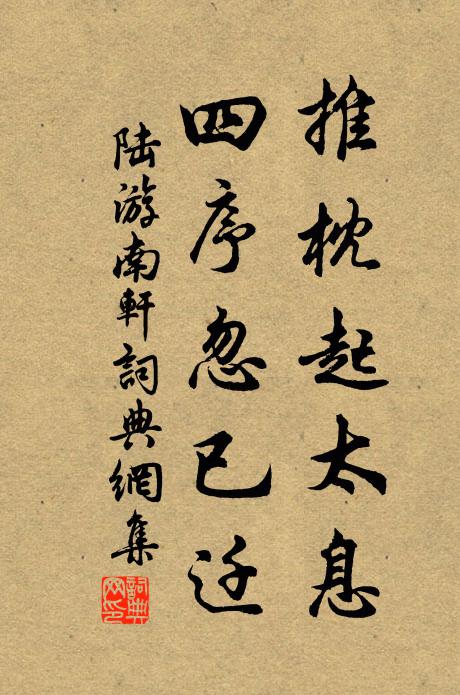 推枕起太息
四序忽已迁
陆游南軒詞典網集
詞典
网印